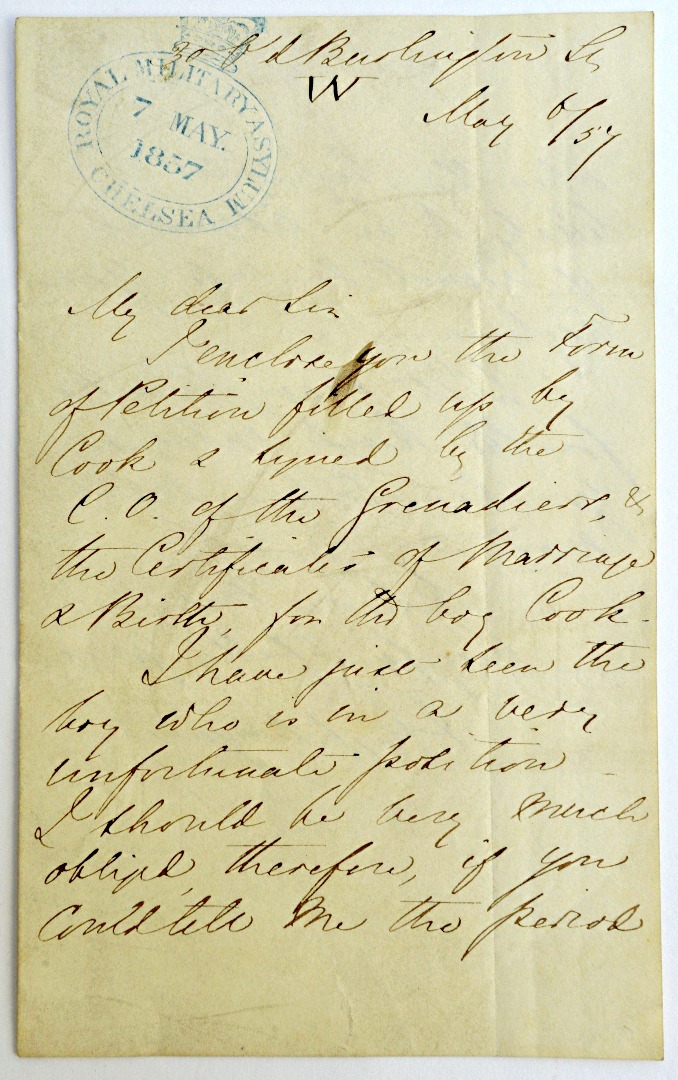 30 Old Burlington St
W
May 6/57
ROYAL MILITARY ASYLUM
7 MAY.
1857
CHELSEA
My dear Sir
I enclose you the Form
of Petition filled up by
Cook & signed by the
C.O. of the Grenadiers, &
the Certificates of Marriage
& Birth, for the boy Cook.
I have just seen the
boy who is in a very
unfortunate position
I should be very much
obliged, therefore, if you
could tell me the period